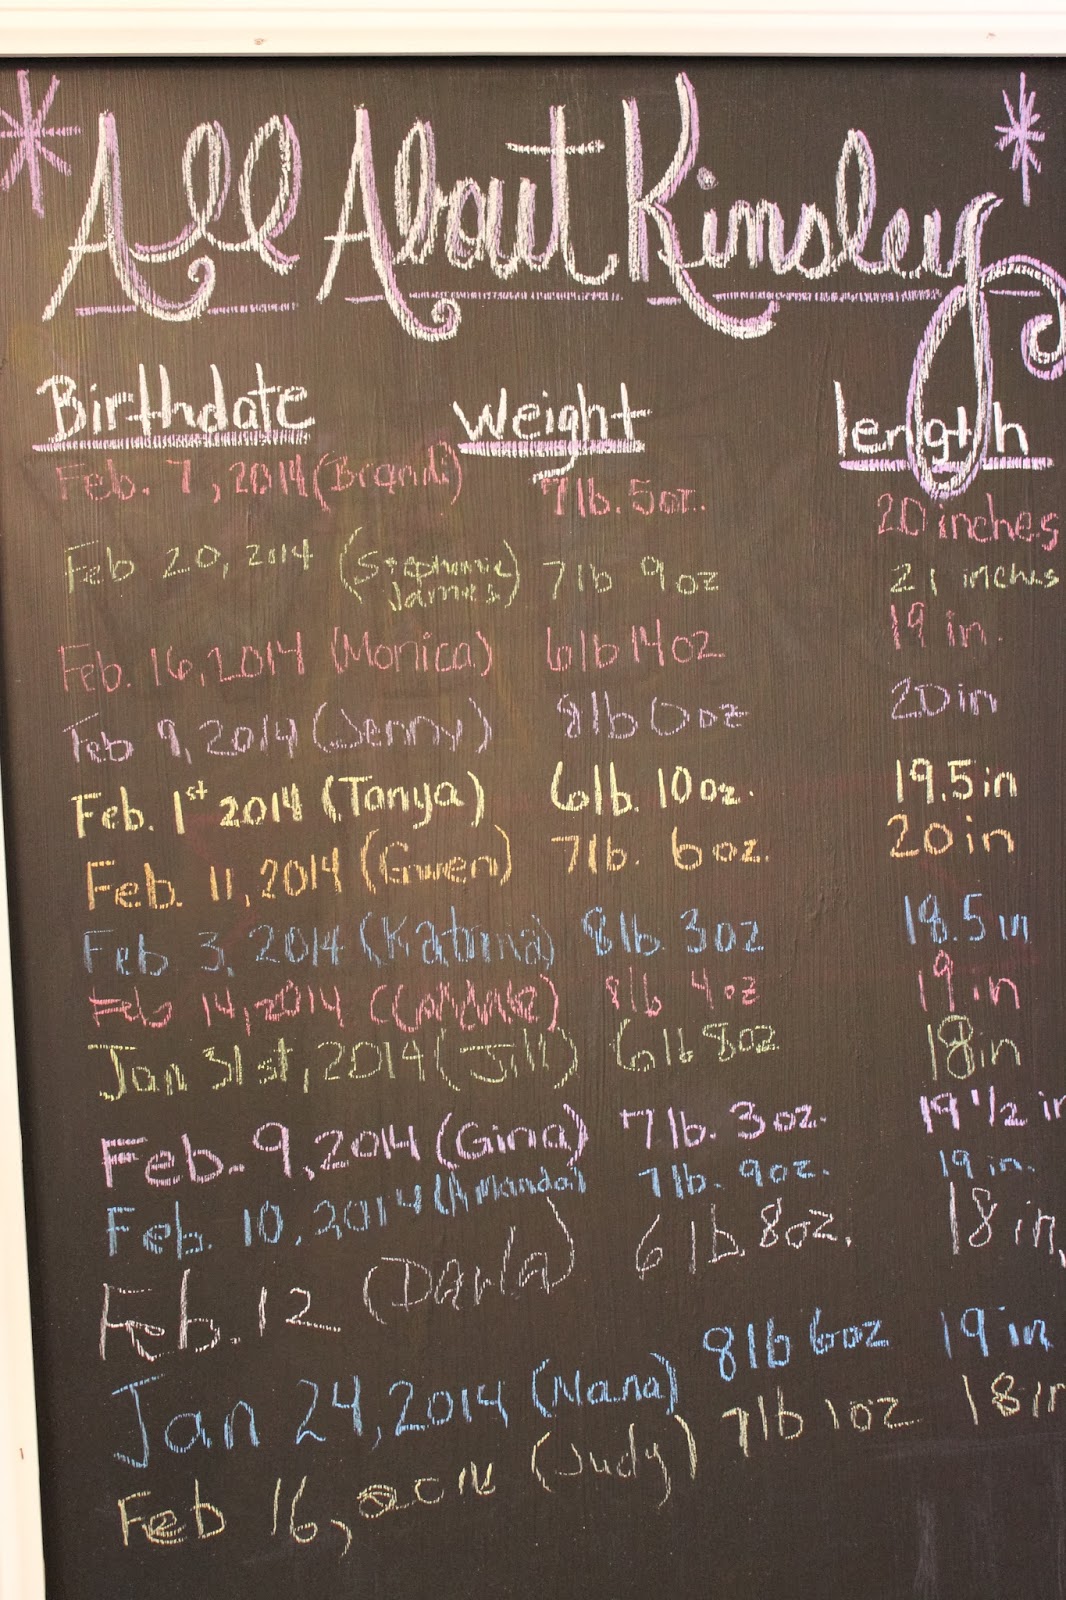 All About Kinsley
Birthdate Weight length
Feb. 7, 2014 (Brandi) 7lb. 5oz. 20 inches
Feb 20, 2014 (Stephanie James) 7lb 9oz 21 inches
Feb. 16, 2014 (Monica) 6lb 14oz 19 in.
Feb 9, 2014 (Jenny) 8lb 0oz 20in
Feb. 1st 2014 (Tanya) 6lb. 10oz. 19.5in
Feb. 11, 2014 (Gwen) 7lb. 6oz. 20in
Feb 3, 2014 (Katrina) 8lb. 3oz 18.5in
Feb 14, 2014 8lb 4oz 19in
Jan 31st, 2014 (Jill) 6lb 8oz 18in
Feb. 9, 2014 (Gina) 7lb. 3oz. 19 1/2 in
Feb. 10, 2014 (Amanda) 7lb. 9oz. 19in.
Feb. 12 (Darla) 6lb 8oz. 18in.
Jan 24, 2014 (Nana) 8lb 6oz 19in
Feb 16, 2014 (Judy) 7lb 1oz 18in